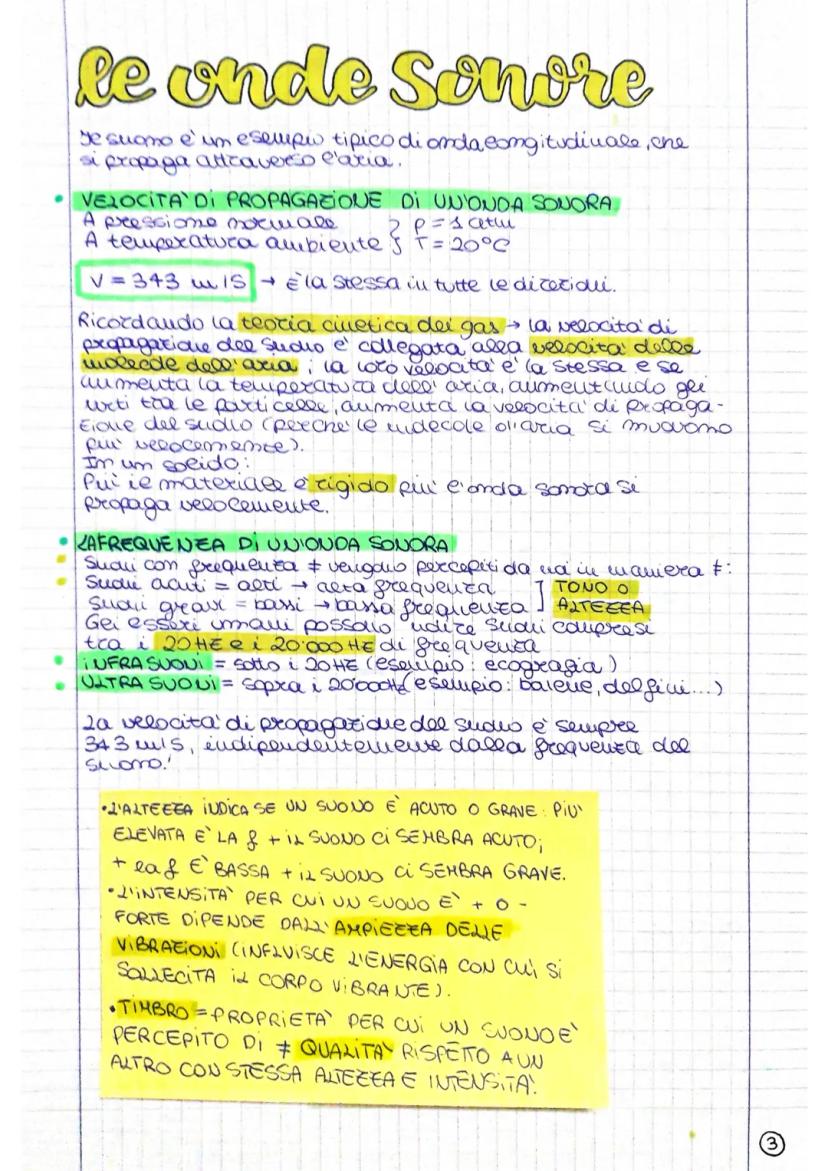 le onde sonore
Il suono è un esempio tipico di onda longitudinale, che
si propaga attraverso l'aria.
• VELOCITÀ DI PROPAGAZIONE DI UN'ONDA SONORA
A pressione normale } p = 1 atm
A temperatura ambiente } T = 20°C
V = 343 m/s → È la stessa in tutte le direzioni.
Ricordando la teoria cinetica dei gas → la velocità di
propagazione del suono è collegata alla velocità delle
molecole dell'aria; la loro velocità è la stessa e se
aumenta la temperatura dell'aria, aumentando gli
urti tra le particelle, aumenta la velocità di propaga-
zione del suono (perché le molecole d'aria si muovono
più velocemente).
In un solido:
Più il materiale è rigido più l'onda sonora si
propaga velocemente.
• LA FREQUENZA DI UN'ONDA SONORA
• Suoni con frequenza ≠ vengono percepiti da noi in maniera ≠:
• Suoni acuti = alti → alta frequenza ] TONO O
Suoni gravi = bassi → bassa frequenza ] ALTEZZA
Gli esseri umani possono udire suoni compresi
tra i 20 Hz e i 20'000 Hz di frequenza
• INFRASUONI = sotto i 20 Hz (esempio: ecografia)
• ULTRASUONI = sopra i 20'000Hz (esempio: balene, delfini...)
La velocità di propagazione del suono è sempre
343 m/s, indipendentemente dalla frequenza del
suono!
• L'ALTEZZA INDICA SE UN SUONO È ACUTO O GRAVE: PIÙ
ELEVATA È LA f + IL SUONO CI SEMBRA ACUTO;
+ la f È BASSA + IL SUONO CI SEMBRA GRAVE.
• L'INTENSITÀ PER CUI UN SUONO È + O -
FORTE DIPENDE DALL'AMPIEZZA DELLE
VIBRAZIONI (INFLUISCE L'ENERGIA CON CUI SI
SOLLECITA IL CORPO VIBRANTE).
• TIMBRO = PROPRIETÀ PER CUI UN SUONO È
PERCEPITO DI ≠ QUALITÀ RISPETTO A UN
ALTRO CON STESSA ALTEZZA E INTENSITÀ.
3